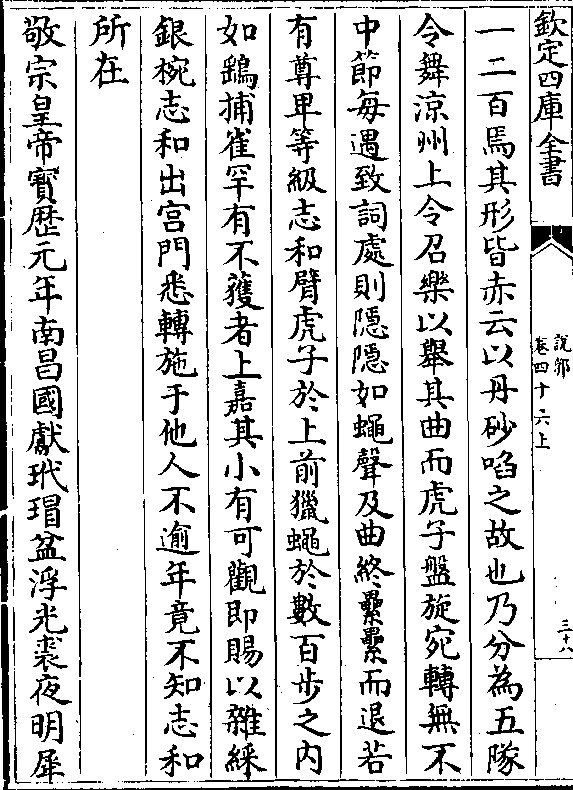 欽定四庫全書
說郛
卷四十六上
三十八
一二百焉其形皆赤云以丹砂啗之故也乃分為五隊
令舞涼州上令召樂以舉其曲而虎子盤旋宛轉無不
中節每遇致詞處則隱隱如蠅聲及曲終纍纍而退若
有尊卑等級志和臂虎子於上前獵蠅於數百步之内
如鷂捕雀罕有不獲者上嘉其小有可觀即賜以雜綵
銀椀志和出宫門悉轉施于他人不逾年竟不知志和
所在
敬宗皇帝寳歴元年南昌國獻玳瑁盆浮光裘夜明犀